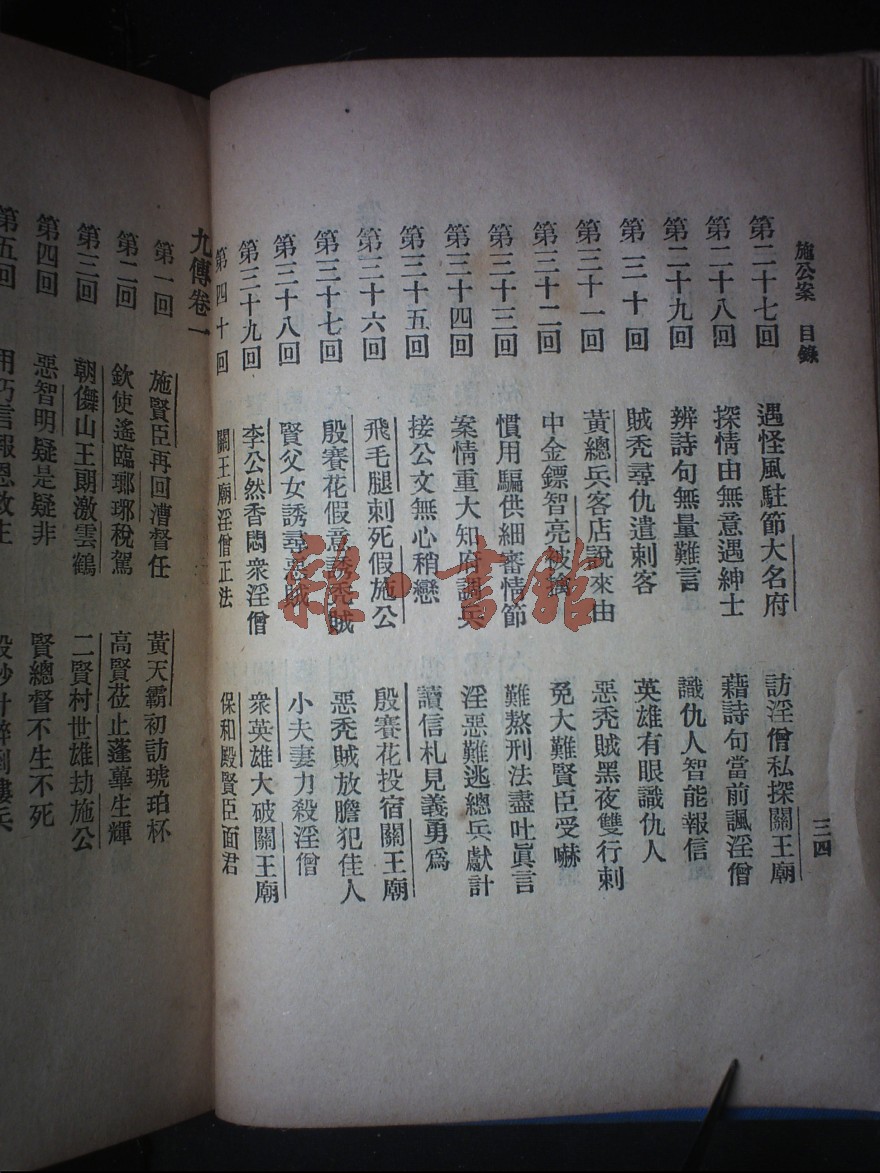 施公案 目錄
三四
第二十七回 遇怪風駐節大名府 訪淫僧私探關王廟
第二十八回 探情由無意遇紳士 藉詩句當前諷淫僧
第二十九回 辨詩句無量難言 識仇人智能報信
第三十回 賊禿尋仇遣刺客 英雄有眼識仇人
第三十一回 黃總兵客店說來由 惡禿賊黑夜雙行刺
第三十二回 中金鏢智亮被擒 免大難賢臣受嚇
第三十三回 慣用騙供細審情節 難熬刑法盡吐眞言
第三十四回 案情重大知府調兵 淫惡難逃總兵獻計
第三十五回 接公文無心稍戀 讀信札見義勇爲
第三十六回 飛毛腿刺死假施公 殷賽花投宿關王廟
第三十七回 殷賽花假意誘禿賊 惡禿賊放膽犯佳人
第三十八回 賢父女誘尋惡賊 小夫妻力殺淫僧
第三十九回 李公然香悶衆淫僧 衆英雄大破關王廟
第四十回 關王廟淫僧正法 保和殿賢臣面君
九傳卷一
第一回 施賢臣再回漕督任 黃天霸初訪琥珀杯
第二回 欽使遙臨瑯琊稅駕 高賢莅止蓬蓽生輝
第三回 朝儛山王朗激雲鶴 二賢村世雄劫施公
第四回 惡智明疑是疑非 賢總督不生不死
第五回 用巧言報恩救主
雜·書館